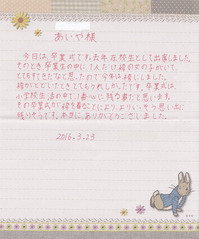 あいや様
今日は、卒業式です。去年、在校生として出席しました。
そのとき、卒業生の中に1人だけ袴の女の子がいて、
とてもすてきだなと思ったので今年は袴にしました。
袴がとどいたときとてもうれしかったです。卒業式は、
小学校生活の中で1番心に残る事だと思います。
その卒業式が袴を着ることにより、よりいっそう思い出に
残りそうです。本当に、ありがとうございました。
2016.3.23